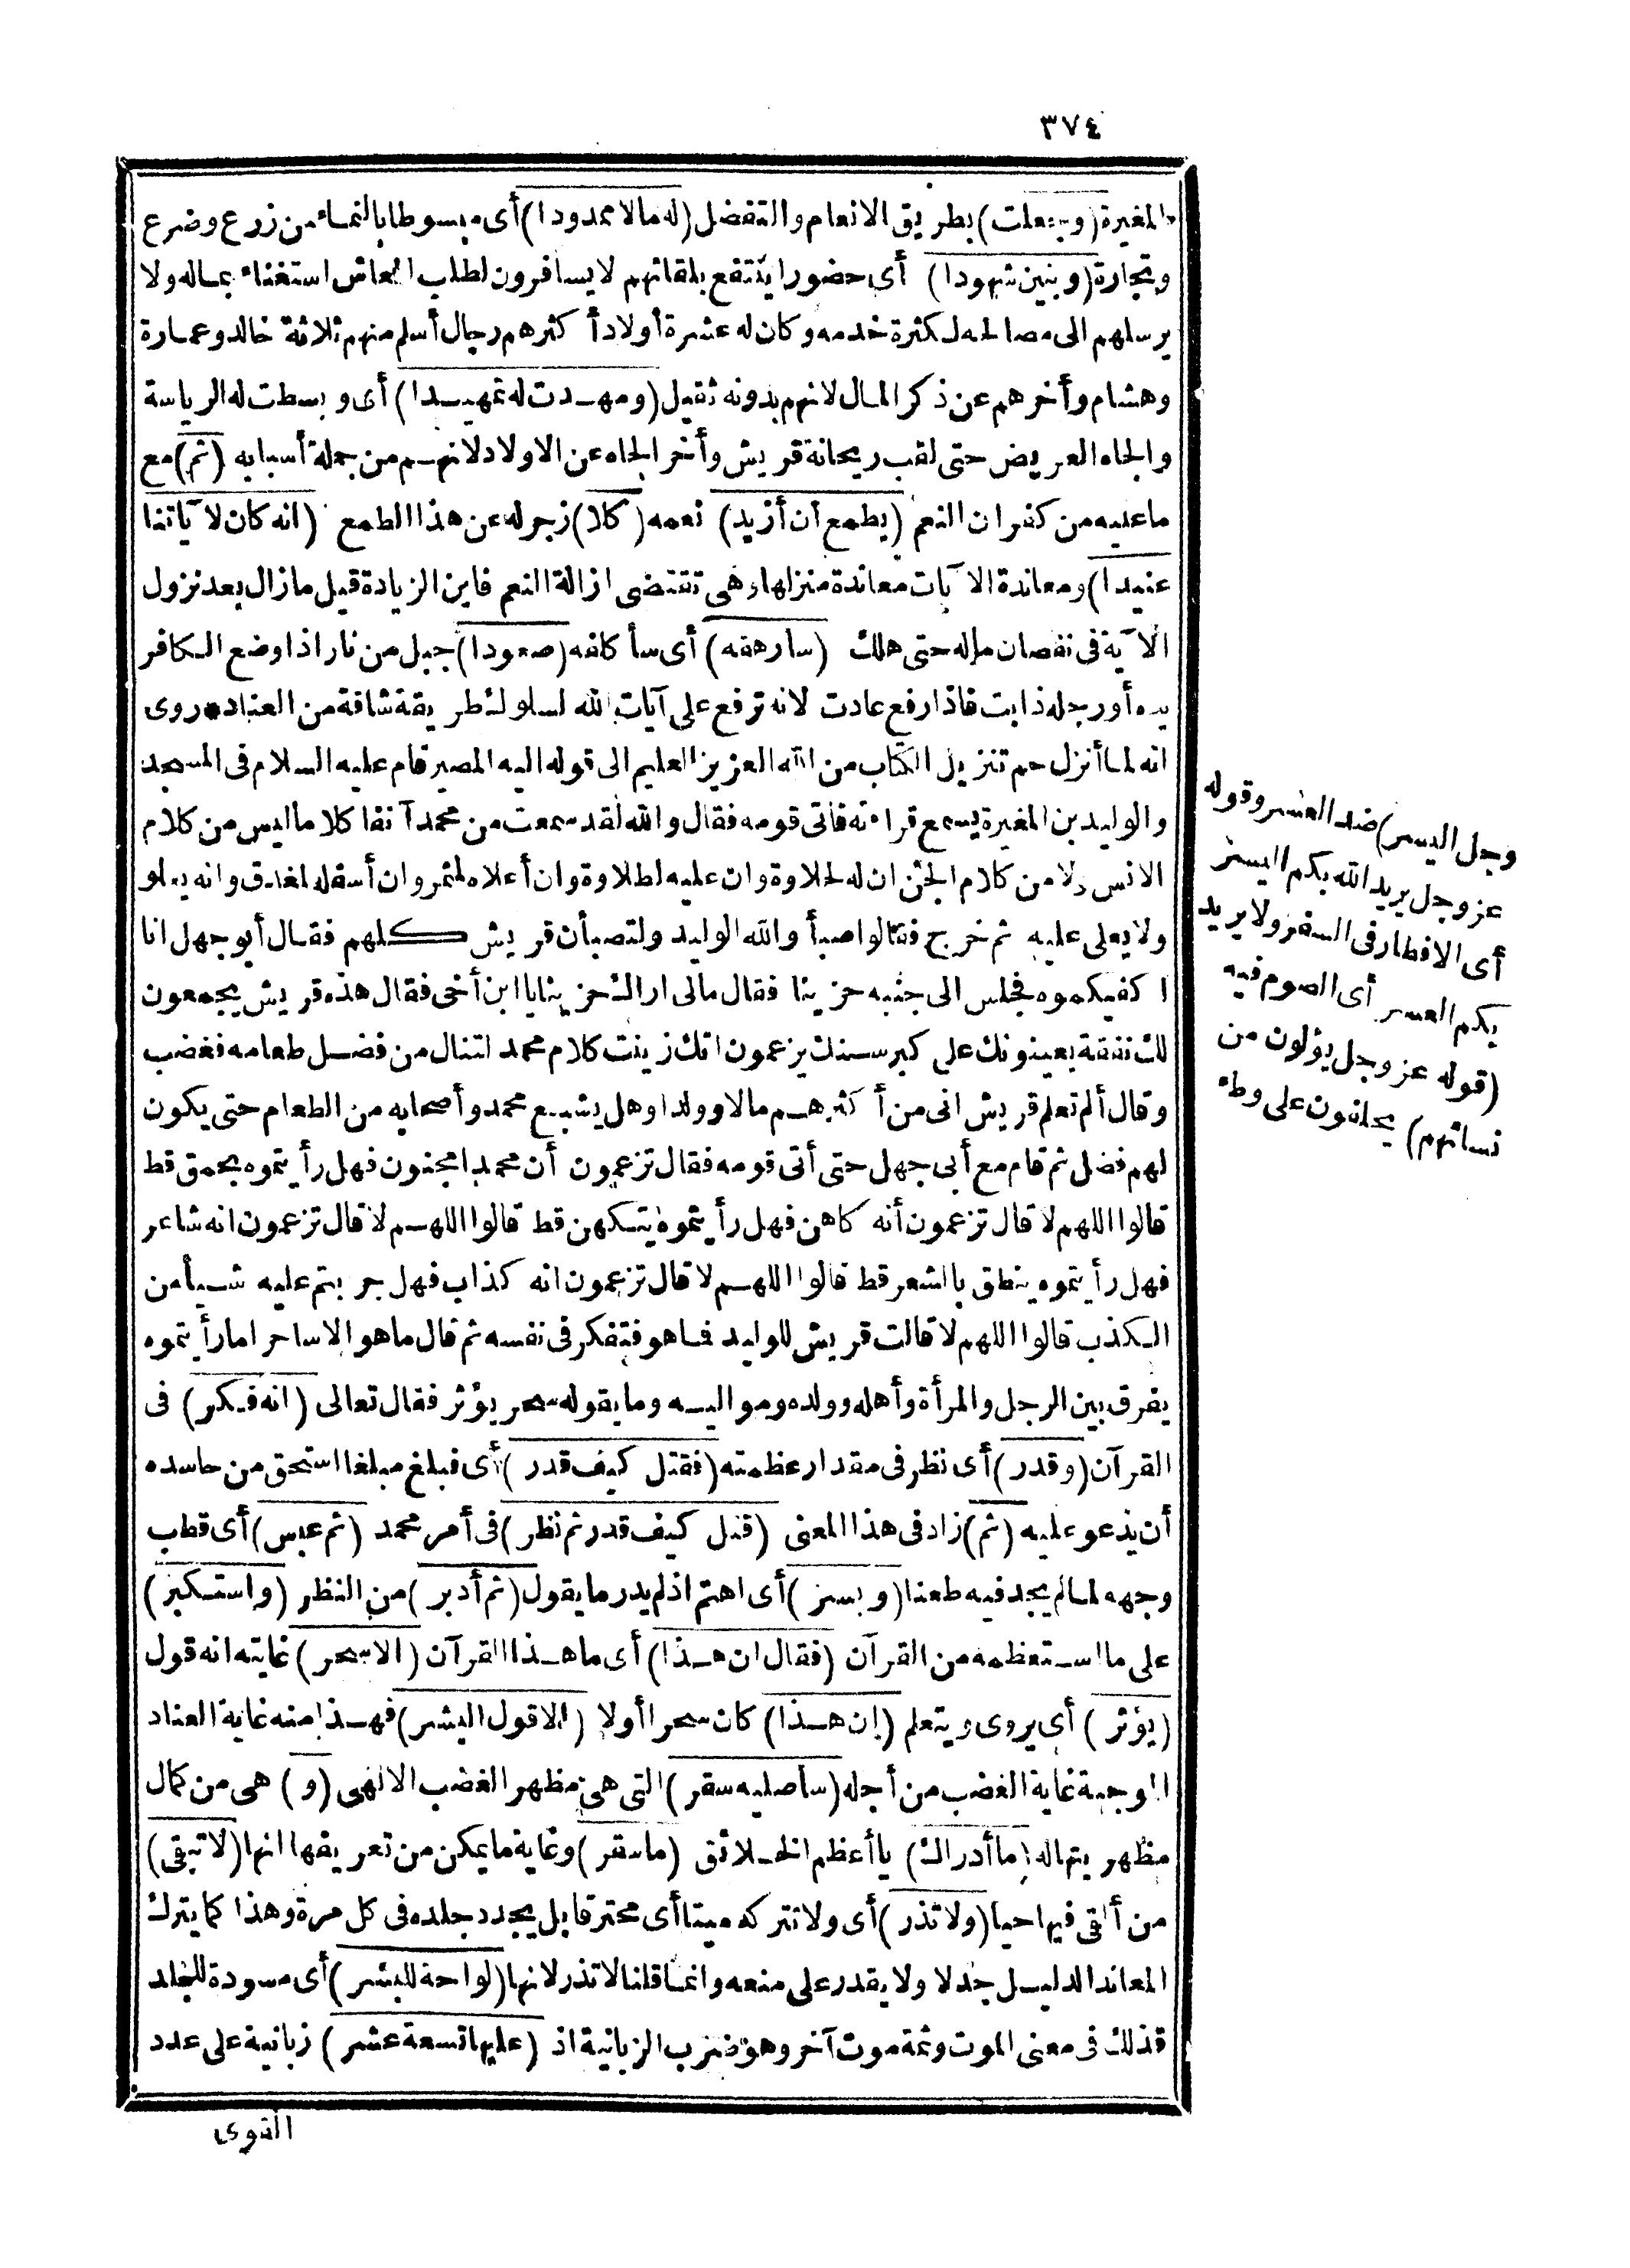 ٣٧٤
المغيرة (وجعلت) بطريق الانعام والتفضل (له مالا ممدودا) أى مبسوطا بالنماء من زرع وضرع
وتجارة (وبنين شهودا) أى حضورا ينتفع بلقائهم لا يسافرون لطلب المعاش استغناء بماله ولا
يرسلهم الى مصالحه لكثرة خدمه وكان له عشرة أولاد أكثرهم رجال أسلم منهم ثلاثة خالد وعمارة
وهشام وأخرهم عن ذكر المال لانهم بدونه ثقيل (ومهدت له تمهيدا) أى وبسطت له الرياسة
والجاه العريض حتى لقب ريحانة قريش وأخر الجاه عن الاولاد لانهم من جملة أسبابه (ثم) مع
ما عليه من كفران النعم (يطمع أن أزيد) نعمه (كلا) زجر له عن هذا الطمع (انه كان لآياتنا
عنيدا) ومعاندة الآيات معاندة منزلها وهى تقتضى ازالة النعم فاين الزيادة قيل ما زال بعد نزول
الآية فى نقصان ماله حتى هلك (سأرهقه) أى سأكلفه (صعودا) جبل من نار اذا وضع الكافر
يده أو رجله ذابت فاذا رفع عادت لانه ترفع على آيات الله لسلوك طريقة شاقة من العناد * روى
انه لما أنزل حم تنزيل الكتاب من الله العزيز العليم الى قوله اليه المصير قام عليه السلام فى المسجد
والوليد بن المغيرة يسمع قراءته فاتى قومه فقال والله لقد سمعت من محمد آنفا كلاما ليس من كلام
الانس ولا من كلام الجن ان له لحلاوة وان عليه لطلاوة وان أعلاه لمثمر وان أسفله لمغدق وانه يعلو
ولا يعلى عليه ثم خرج فقالوا صبأ والله الوليد ولتصبأن قريش كلهم فقال أبو جهل انا
اكفيكموه فجلس الى جنبه حزينا فقال مالى اراك حزينا يا ابن أخى فقال هذه قريش يجمعون
لك نفقة يعينونك على كبر سنك يزعمون انك زينت كلام محمد لتنال من فضل طعامه فغضب
وقال ألم تعلم قريش انى من أكثرهم مالا وولدا وهل يشبع محمد وأصحابه من الطعام حتى يكون
لهم فضل ثم قام مع أبى جهل حتى أتى قومه فقال تزعمون أن محمدا مجنون فهل رأيتموه يحمق قط
قالوا اللهم لا قال تزعمون أنه كاهن فهل رأيتموه يتكهن قط قالوا اللهم لا قال تزعمون انه شاعر
فهل رأيتموه ينطق بالشعر قط قالوا اللهم لا قال تزعمون انه كذاب فهل جربتم عليه شيأ من
الكذب قالوا اللهم لا قالت قريش للوليد فما هو فتفكر فى نفسه ثم قال ما هو الا ساحر اما رأيتموه
يفرق بين الرجل والمرأة وأهله وولده ومواليه وما يقوله سحر يؤثر فقال تعالى (انه فكر) فى
القرآن (وقدر) أى نظر فى مقدار عظمته (فقتل كيف قدر) أى فبلغ مبلغا استحق من حاسده
أن يدعو عليه (ثم) زاد فى هذا المعنى (قتل كيف قدر ثم نظر) فى أمر محمد (ثم عبس) أى قطب
وجهه لما لم يجد فيه طعنا (وبسر) أى اهتم اذ لم يدر ما يقول (ثم أدبر) من النظر (واستكبر)
على ما استعظمه من القرآن (فقال ان هذا) أى ما هذا القرآن (الا سحر) غايته انه قول
(يؤثر) أى يروى ويتعلم (إن هذا) كان سحرا أولا (الا قول البشر) فهذا منه غاية العناد
الموجبة غاية الغضب من أجله (سأصليه سقر) التى هى مظهر الغضب الالهى (و) هى من كمال
مظهريتها له (ما أدراك) يا أعظم الخلائق (ما سقر) وغاية ما يمكن من تعريفها انها (لا تبقى)
من ألقى فيها حيا (ولا تذر) أى ولا تتركه ميتا أى محترقا بل يجدد جلده فى كل مرة وهذا كما يترك
المعاند الدليل جدلا ولا يقدر على منعه وانما قلنا لا تذر لانها (لواحة للبشر) أى مسودة للجلد
فذلك فى معنى الموت وثمة موت آخر وهو ضرب الزبانية اذ (عليها تسعة عشر) زبانية على عدد
القوى
وجل اليسر) ضد العسر وقوله
عز وجل يريد الله بكم اليسر
أى الافطار فى السفر ولا يريد
بكم العسر أى الصوم فيه
(قوله عز وجل يؤلون من
نسائهم) يحلفون على وطء